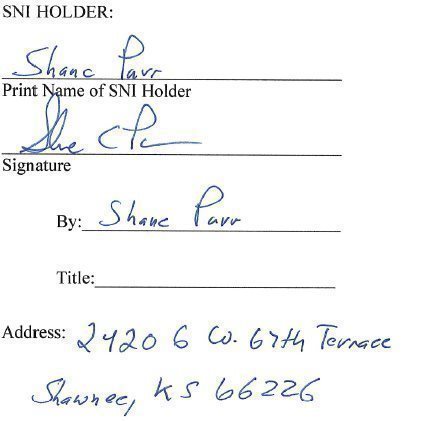 SNI HOLDER:
Shane Parr
Print Name of SNI Holder
Shane C Parr
Signature
By: Shane Parr
Title:
Address: 24206 W. 67th Terrace
Shawnee, KS 66226